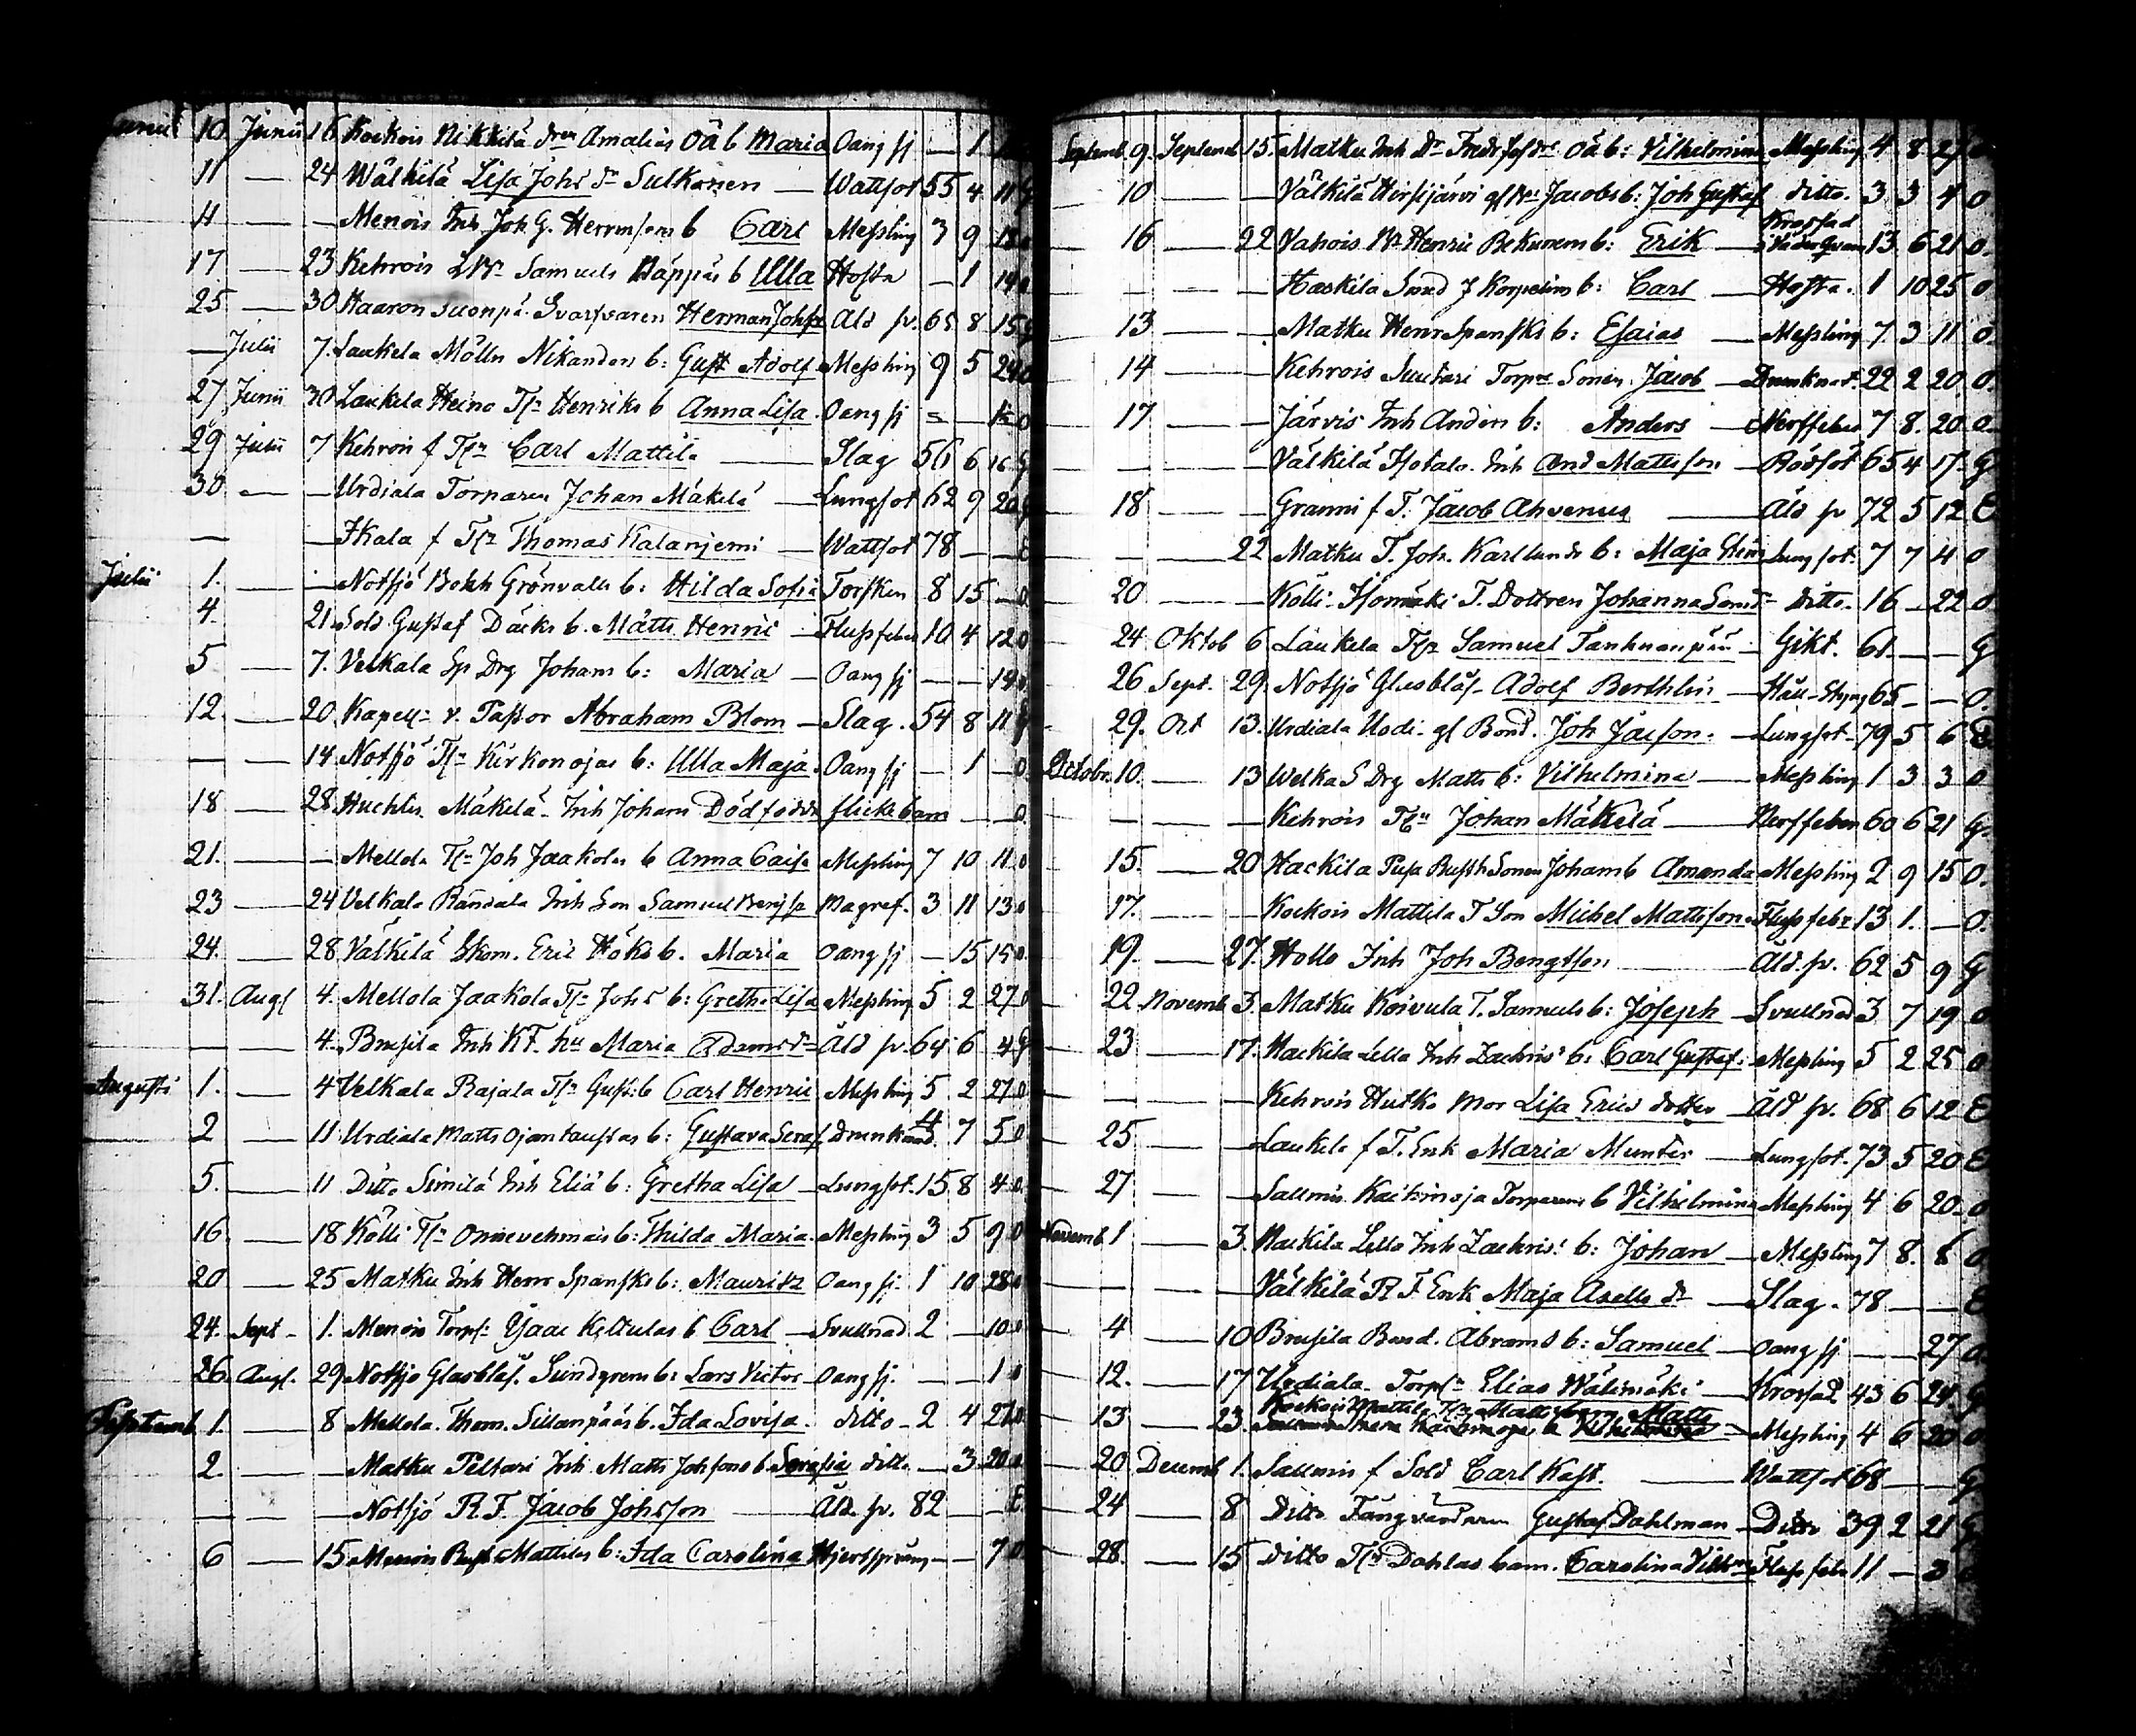 Junii 10. Junii 16 Kockois Nikkilä drn Amalias Oä b Maria Oang sj — 1
11 — 24 Wälkilä Lisa Johs dr Sulkonen — Wattsot 55 4 11 G
11 — — Menois Inh Joh G. Hermfsons b Carl Messling 3 9 18 0
17 — 23 Kehrois Samuels b Ulla Hosta — 1 14 0
25 — 30 Haaron Svarfvaren Herman Johss Åld sv. 65 8 15 G
— Julii 7. Laukela Möln Nikanders b: Gust Adolf Messling 9 5 24 0
27 Junii 30 Laukela Heino Tp Henriks b Anna Lisa Oang sj — — 0
29 Julii 7 Kehrois f Tpn Carl Mattila — Slag 56 6 16 G
30 — — Urdiala Torparen Johan Mäkelä — Lungsot 62 9 20 G
— — Ikala f Tpr Thomas Kalanjemi — Wattsot 78 — — E
Julii 1. — Notsjö Bokh Grönvalls b: Hilda Sofia Torsken 8 15 — 0
4. 21. Sold Gustaf Däcks b. Matts Henric — Flussfeber 10 4 12 0
5 — 7. Velkala Sp Drg Johans b: Maria — Oang sj — — 14 0
12. — 20 Kapell: v. Pastor Abraham Blom — Slag. 54 8 11 G
— — 14 Notsjö Tp Kirkonojas b: Ulla Maja. Oang sj — 1 — 0
18 — 28. Huchtis Mäkilä Inh Johans Dödfödde flickebarn — — 0
21. — — Mellola Tp Joh Jaakolas b Anna Caisa Messling 7 10 11 0
23 — 24 Velkala Ransala Inh Son Samuel Magref. 3 11 13 0
24. — 28 Välkilä Skom. Eric Höks b. Maria Oang sj — 15 15 0
31. Aug 4. Mellola Jaakola Tp Johs b: Gretha Lisa Messling 5 2 27 0
— — 4. Brusila Inh KF. hu Maria Adamsdr Åld sv. 64 6 4 G
Augusti 1. — 4 Velkala Rajala Tp Gust: b Carl Henric Messling 5 2 27 0
2 — 11 Urdiala Matts Ojantaustas b: Gustava Seraf Drunknad. 11 7 5 0
5. — 11 Ditto Similä Inh Eliä b: Gretha Lisa — Lungsot. 15 8 4 0
16. — 18 Kölli Tp b: Thilda Maria. Messling 3 5 9 0
20 — 25 Matku Inh Henr Spansks b: Mauritz Oang sj. 1 10 28 0
24. Sept — 1. Menois Torp: Isaac b Carl — Svullnad 2 — 10 0
26. Aug. 29 Notsjö Glasblås. Sundgrens b: Lars Victor — Oang sj. — — 1 0
Septemb 1. — 8 Mellola. Thom. Sillanpääs b. Ida Lovisa. ditto — 2 4 27 0
2. — — Matku Peltari Inh Matts Johsons b Serafia ditto — 3 20 0
— — — Notsjö R.F. Jacob Johsson — Åld. sv. 82 — — E
6 — 15 Menois Mattilas b: Ida Carolina Hjertsprång — — 7 0
Septemb 9. Septemb 15. Matku Inh Dr Oä b: Vilhelmina Messling 4 8 27
10 — — Välkilä Hirsijärvi Jacobs b: Joh Gustaf ditto. 3 3 4 0
16 — 22 Vahois Henric Bekurens b: Erik — 13. 6 21 0.
— — — Haskila Smed J Korpelins b: Carl — Hosta. 1 10 25 0
13 — — Matku Henr Spansks b: Esaias — Messling 7. 3 11 0.
14 — — Kehrois Suutari Torpre Sonen Jacob — Drunknat. 22 2 20. 0.
17 — — Järvis Inh Anders b: Anders — Nerffeber 7 8. 20. 0.
— — — Välkilä Isotalo. Inh And Mattsson — Rödsot 65 4 17 G
18 — — Granni f T. Jacob Ahvenus — Åld sv 72 5 12 E
— — 22 Matku T. Joh. Karllunds b: Maja Stina Lungsot. 7 7 4 0
20 — — Kölli Isomäki T. Dottren Johanna — Ditto. 16 — 22 0.
24. Oktob 6 Laukela Tpr Samuel Tanhuanpää — Gikt. 61. — — G
26 Sept. 29. Notsjö Glasblås — Adolf Berthlin — Håll-Styng 65 — — 0.
29. Oct 13. Urdiala Uodi gl Bond. Joh Jacson. — Lungsot — 79 5 6 E
Octobr. 10. — 13 Welka S Drg Matts b: Vilhelmina — Messling 1 3 3 0
— — — Kehrois Tpn Johan Mäkelä — Nerffeber 60 6 21 G.
15. — 20 Hackila Pusa Rusth Sonen Johans b Amanda — Messling 2 9 15 0.
17. — — Kockois Mattila T Son Michel Mattsson — Flussfebr 13 1. — 0.
19. — 27. Hollo Inh Joh Bengtson — Åld. sv. 62 5 9 G
22 Novemb 3. Matku Koivula T. Samuels b: Joseph — Svullnad 3 7 19 0
23 — 17. Hackila Lella Inh Zachris' b: Carl Gustaf. — Messling 5 2 25 0
— — — Kehrois Hutko mor Lisa Erics dotter — Åld sv. 68 6 12 E
25 — — Laukela f T. Enk Maria Munter — Lungsot. 73 5 20 E
27 — — Salmis Kaitinoja Torparens b Vilhelmina Messling 4 6 20 0
Novemb 1 — 3. Hackila Lello Inh Zachris' b: Johan — Messling 7 8. 6 0
— — — Välkilä R F Enk Maja Axells dr — Slag. 78 — — E
4 — 10 Brusila Bond. Abrams b: Samuel — Oang sj — — 27 0.
12. — 17 Urdiala Torpn Elias Wälimäki — Krossad 43 6 24 G
13 — 23. Kockois Mattila Tpr Mattssons Matts — Messling 4 6 20 0
20 Decemb 1. Salmis f Sold Carl Kast. — Wattsot 68 — — G
24 — 8 Ditto Fångvärdaren Gustaf Dahlman — Ditto 39 2 21 G
28. — 15 Ditto Tpn Dahlas barn. Carolina Vilhna Flussfebr 11 — 3